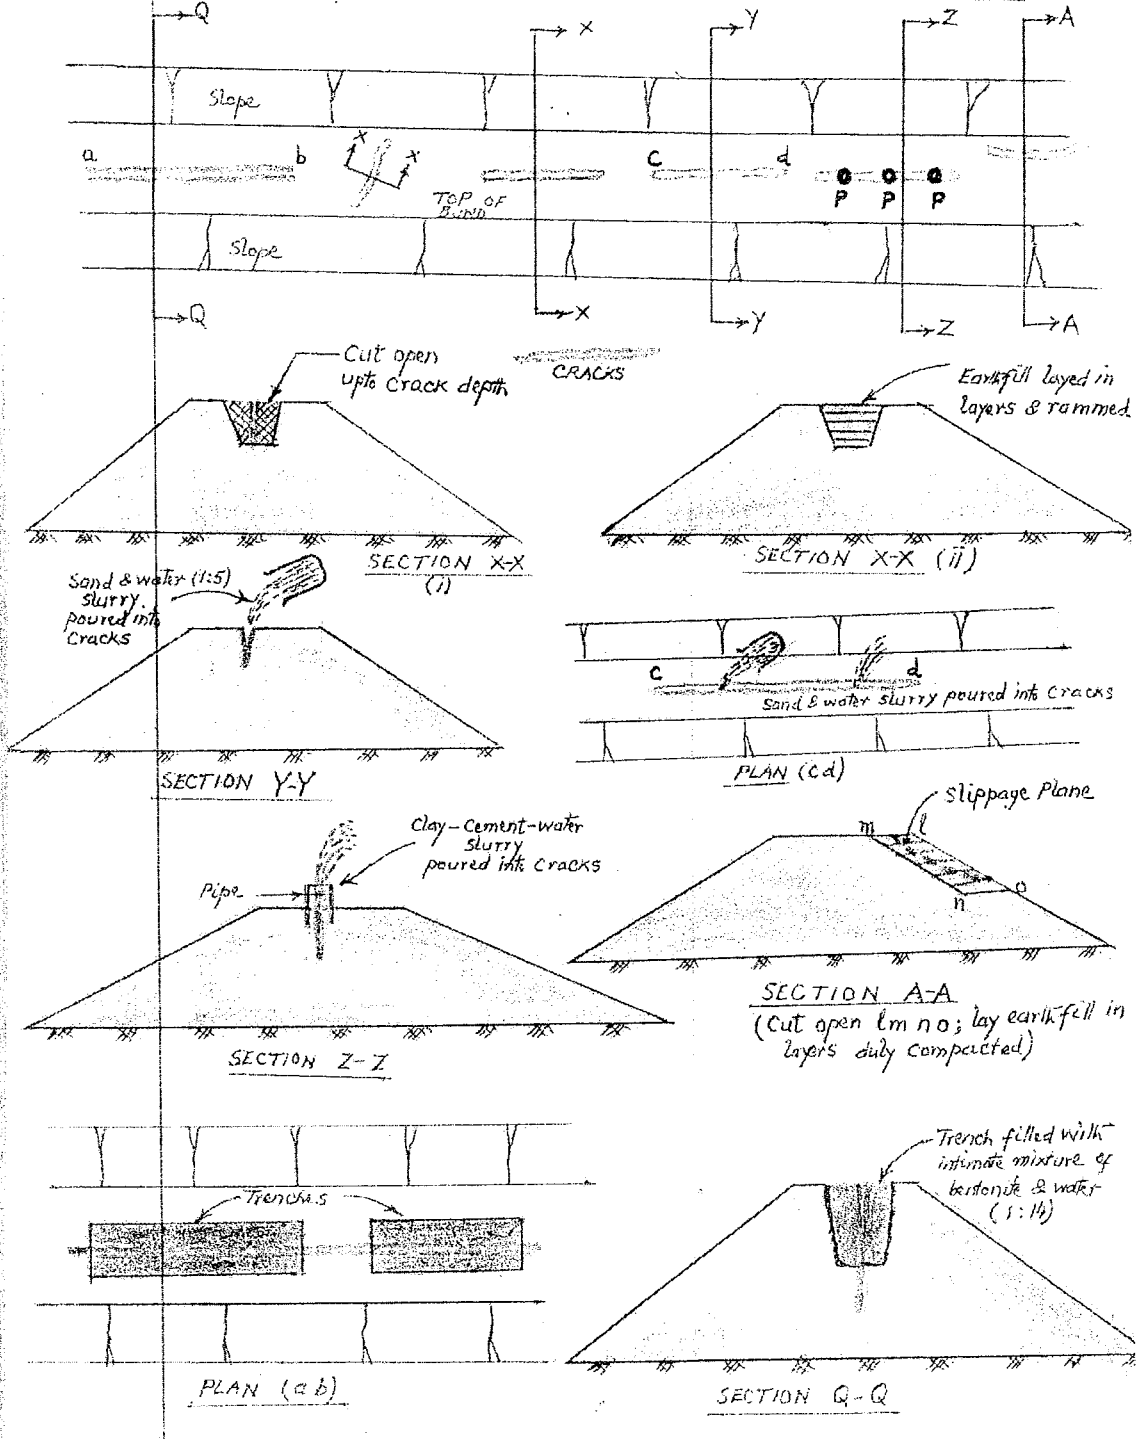 Q X Y Z A
Slope
a b X X C d
P P P
TOP OF
BUND
Slope
Q X Y Z A
Cut open
upto Crack depth
CRACKS
Earthfill layed in
layers & rammed
SECTION X-X
(i)
SECTION X-X (ii)
Sand & water (1:5)
slurry
poured into
Cracks
SECTION Y-Y
C d
Sand & water slurry poured into Cracks
PLAN (Cd)
Clay-Cement-water
slurry
poured into Cracks
Pipe
SECTION Z-Z
Slippage Plane
m l
n o
SECTION A-A
(Cut open lmno; lay earthfill in
layers duly compacted)
Trenches
PLAN (ab)
Trench filled with
intimate mixture of
bentonite & water
SECTION Q-Q